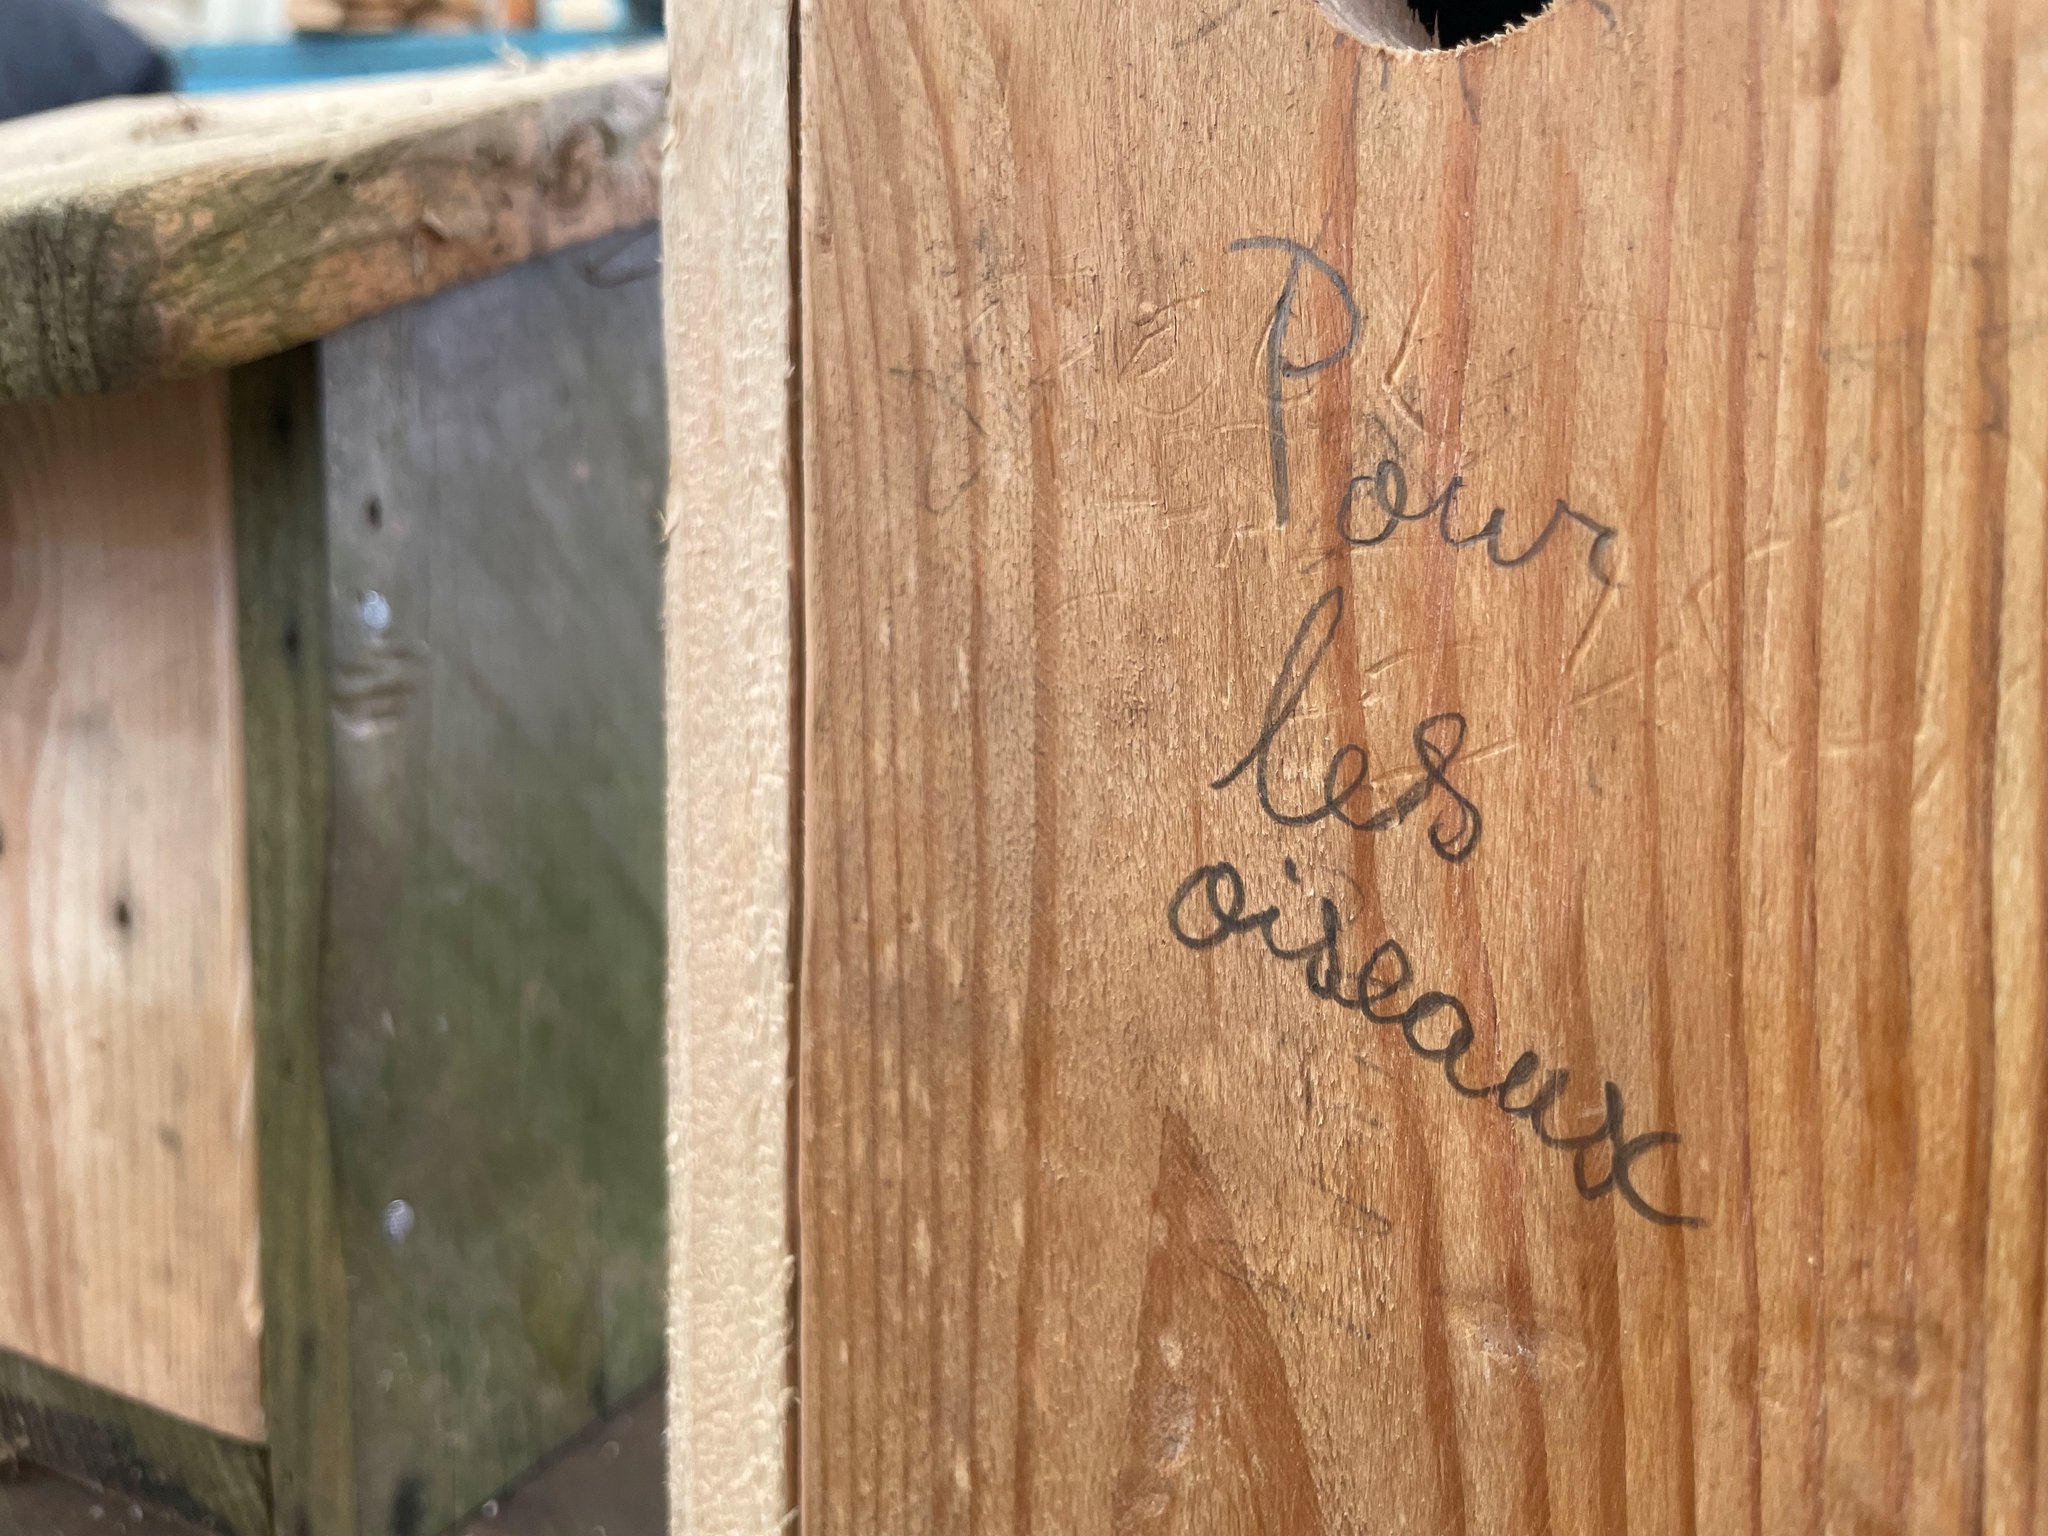 Pour
les
oiseaux